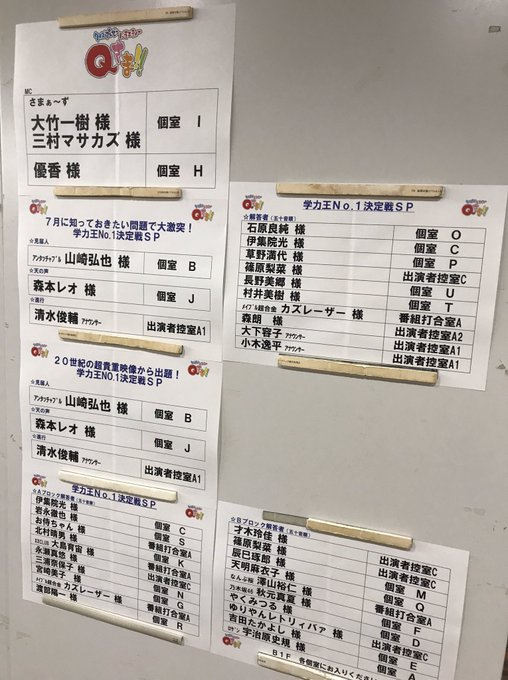 Qさま!!
MC
さまぁ~ず
大竹一樹 様
三村マサカズ 様
個室 I
優香 様 個室 H
7月に知っておきたい問題で大激突!
学力王No.1決定戦SP
☆見届人
アンタッチャブル 山崎弘也 様 個室 B
☆天の声
森本レオ 様 個室 J
☆進行
清水俊輔 アナウンサー 出演者控室A1
20世紀の超貴重映像から出題!
学力王NO.1決定戦SP
☆見届人
アンタッチャブル 山崎弘也 様 個室 B
☆天の声
森本レオ 様 個室 J
☆進行
清水俊輔 アナウンサー 出演者控室A1
学力王No.1決定戦SP
☆Aブロック解答者(五十音順)
伊集院光 様 個室 C
岩永徹也 様 個室 S
お侍ちゃん 様 番組打合室A
北村晴男 様 個室 K
大島育宙 様 番組打合室A
永瀬真悠 様 出演者控室C
三浦奈保子 様 個室 N
宮崎美子 様 個室 G
メイプル超合金 カズレーザー 様 番組打合室A
渡部陽一 様 個室 R
学力王No.1決定戦SP
☆解答者(五十音順)
石原良純 様 個室 O
伊集院光 様 個室 C
草野満代 様 個室 P
篠原梨菜 様 出演者控室C
長野美郷 様 個室 U
村井美樹 様 個室 T
メイプル超合金 カズレーザー 様 番組打合室A
森朗 様 出演者控室A2
大下容子 アナウンサー 出演者控室A1
小木逸平 アナウンサー 出演者控室A1
☆Bブロック解答者(五十音順)
才木玲佳 様 出演者控室C
篠原梨菜 様 出演者控室C
辰巳琢郎 様 個室 M
天明麻衣子 様 個室 Q
なんぶ桜 澤山裕仁 様 番組打合室A
乃木坂46 秋元真夏 様 個室 F
やくみつる 様 個室 D
ゆりやんレトリィバァ 様 出演者控室C
吉田たかよし 様 個室 E
ロザン 宇治原史規 様 個室 A
B1F 各個室にお入りください